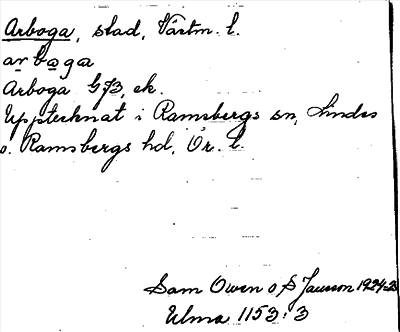 Arboga, stad, Västm. l.
arboga
Arboga GJB, ek.
Upptecknat i Ramsbergs sn, Lindes
o. Ramsbergs hd, Ör. l.
Sam Owen o S Jansson 1924-25
Ulma 1153:3